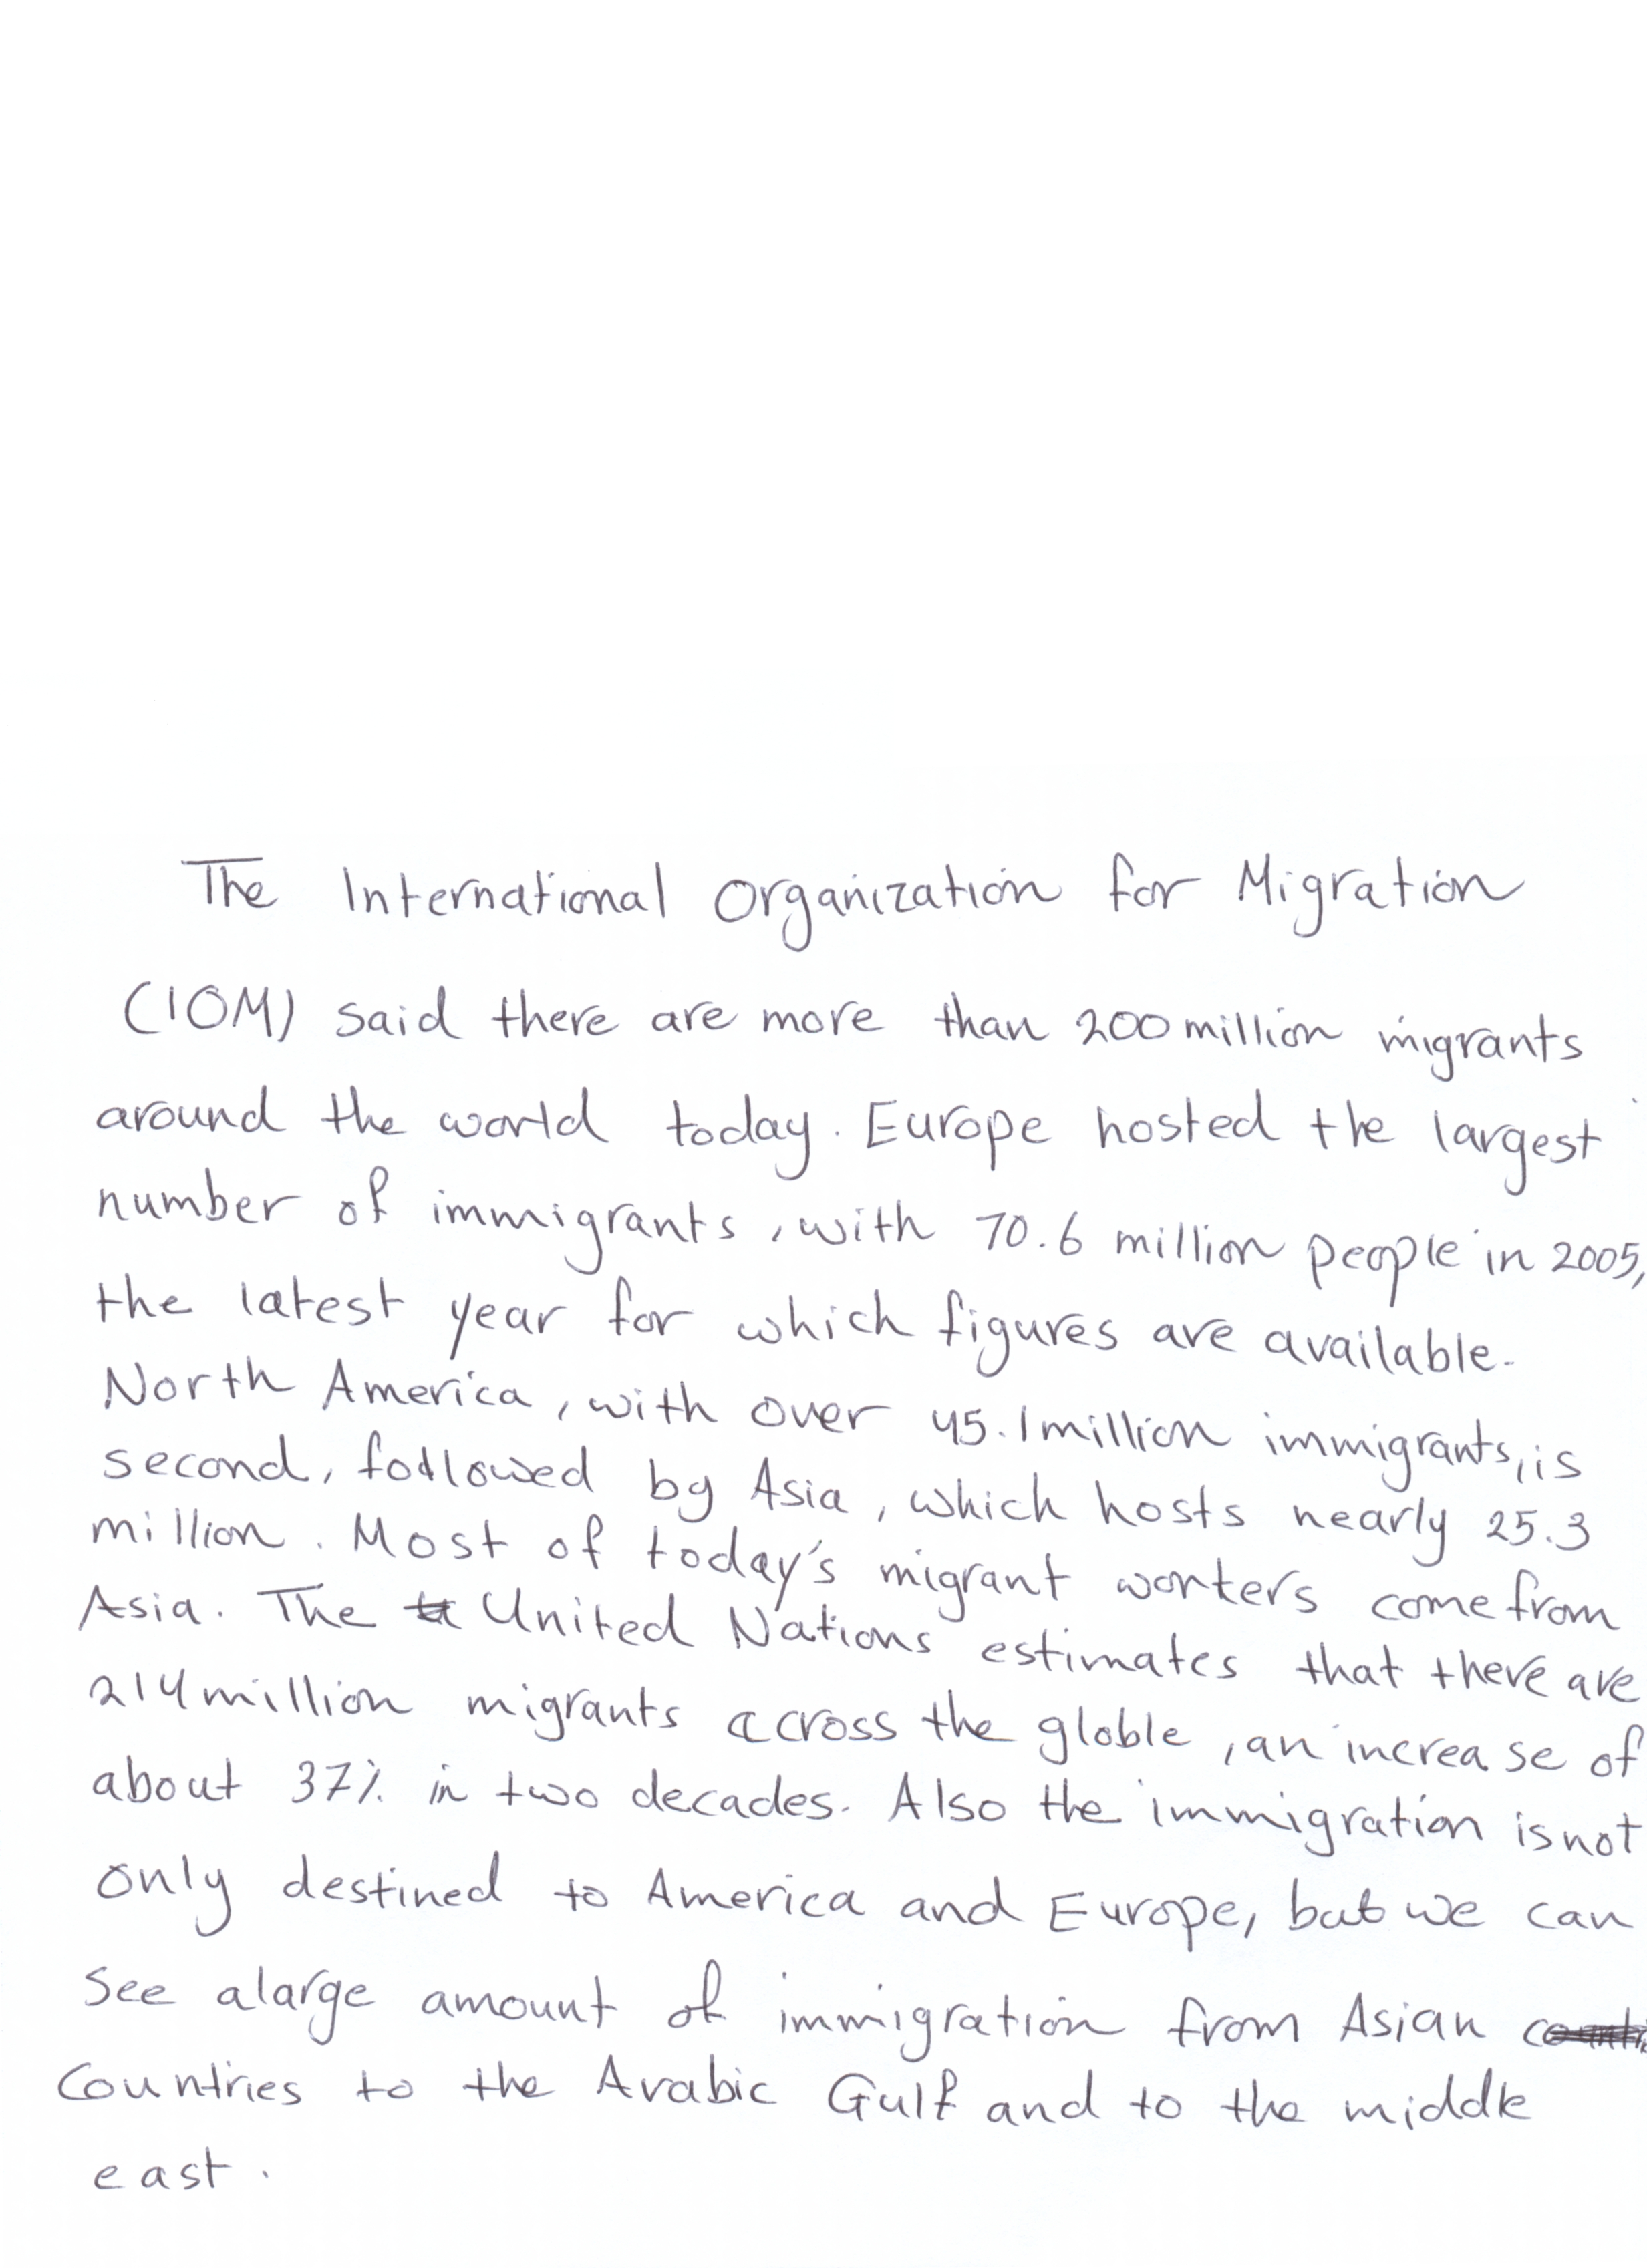 The International Organization for Migration
(IOM) said there are more than 200 million migrants
around the world today. Europe hosted the largest
number of immigrants, with 70.6 million people in 2005,
the latest year for which figures are available.
North America, with over 45.1 million immigrants, is
second, followed by Asia, which hosts nearly 25.3
million. Most of today's migrant workers come from
Asia. The United Nations estimates that there are
214 million migrants across the globle, an increase of
about 37% in two decades. Also the immigration is not
only destined to America and Europe, but we can
see a large amount of immigration from Asian
Countries to the Arabic Gulf and to the middle
east.